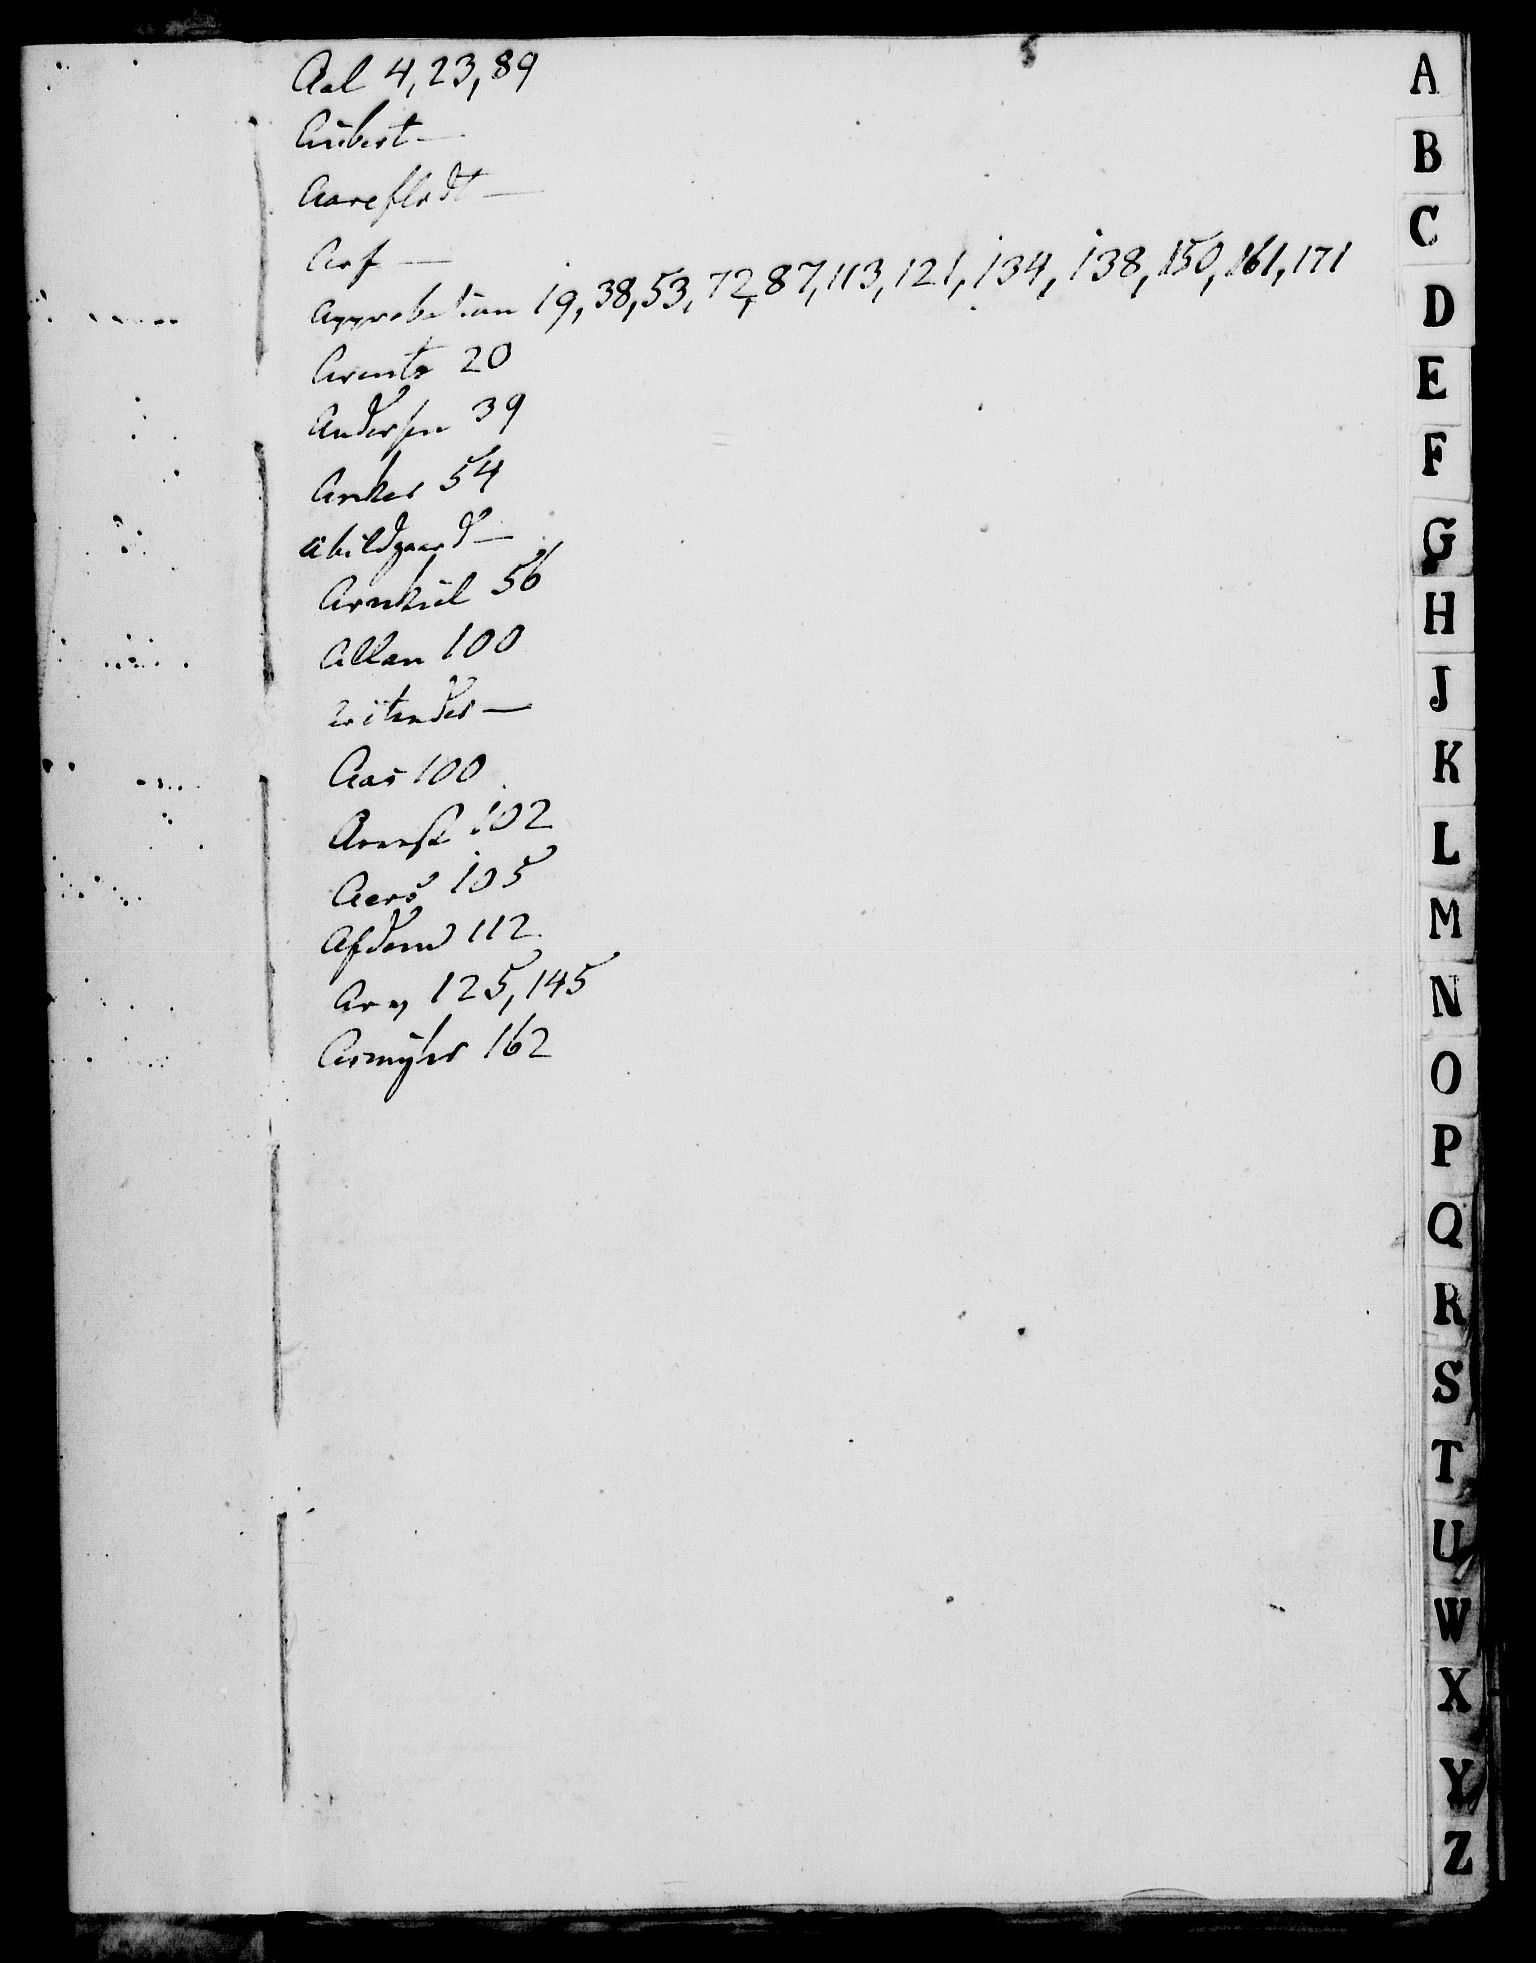 Aal 4, 23, 89
Aubert —
Aareflodt —
Arf —
Approbation 19, 38, 53, 72, 87, 113, 121, 134, 138, 150, 161, 171
Arentz 20
Andersen 39
Anker 54
Abildgaard —
Arnkiel 56
Allan 100
—
Aas 100
102
105
112
Ary 125, 145
162
A
B
C
D
E
F
G
H
J
K
L
M
N
O
P
Q
R
S
T
U
W
X
Y
Z